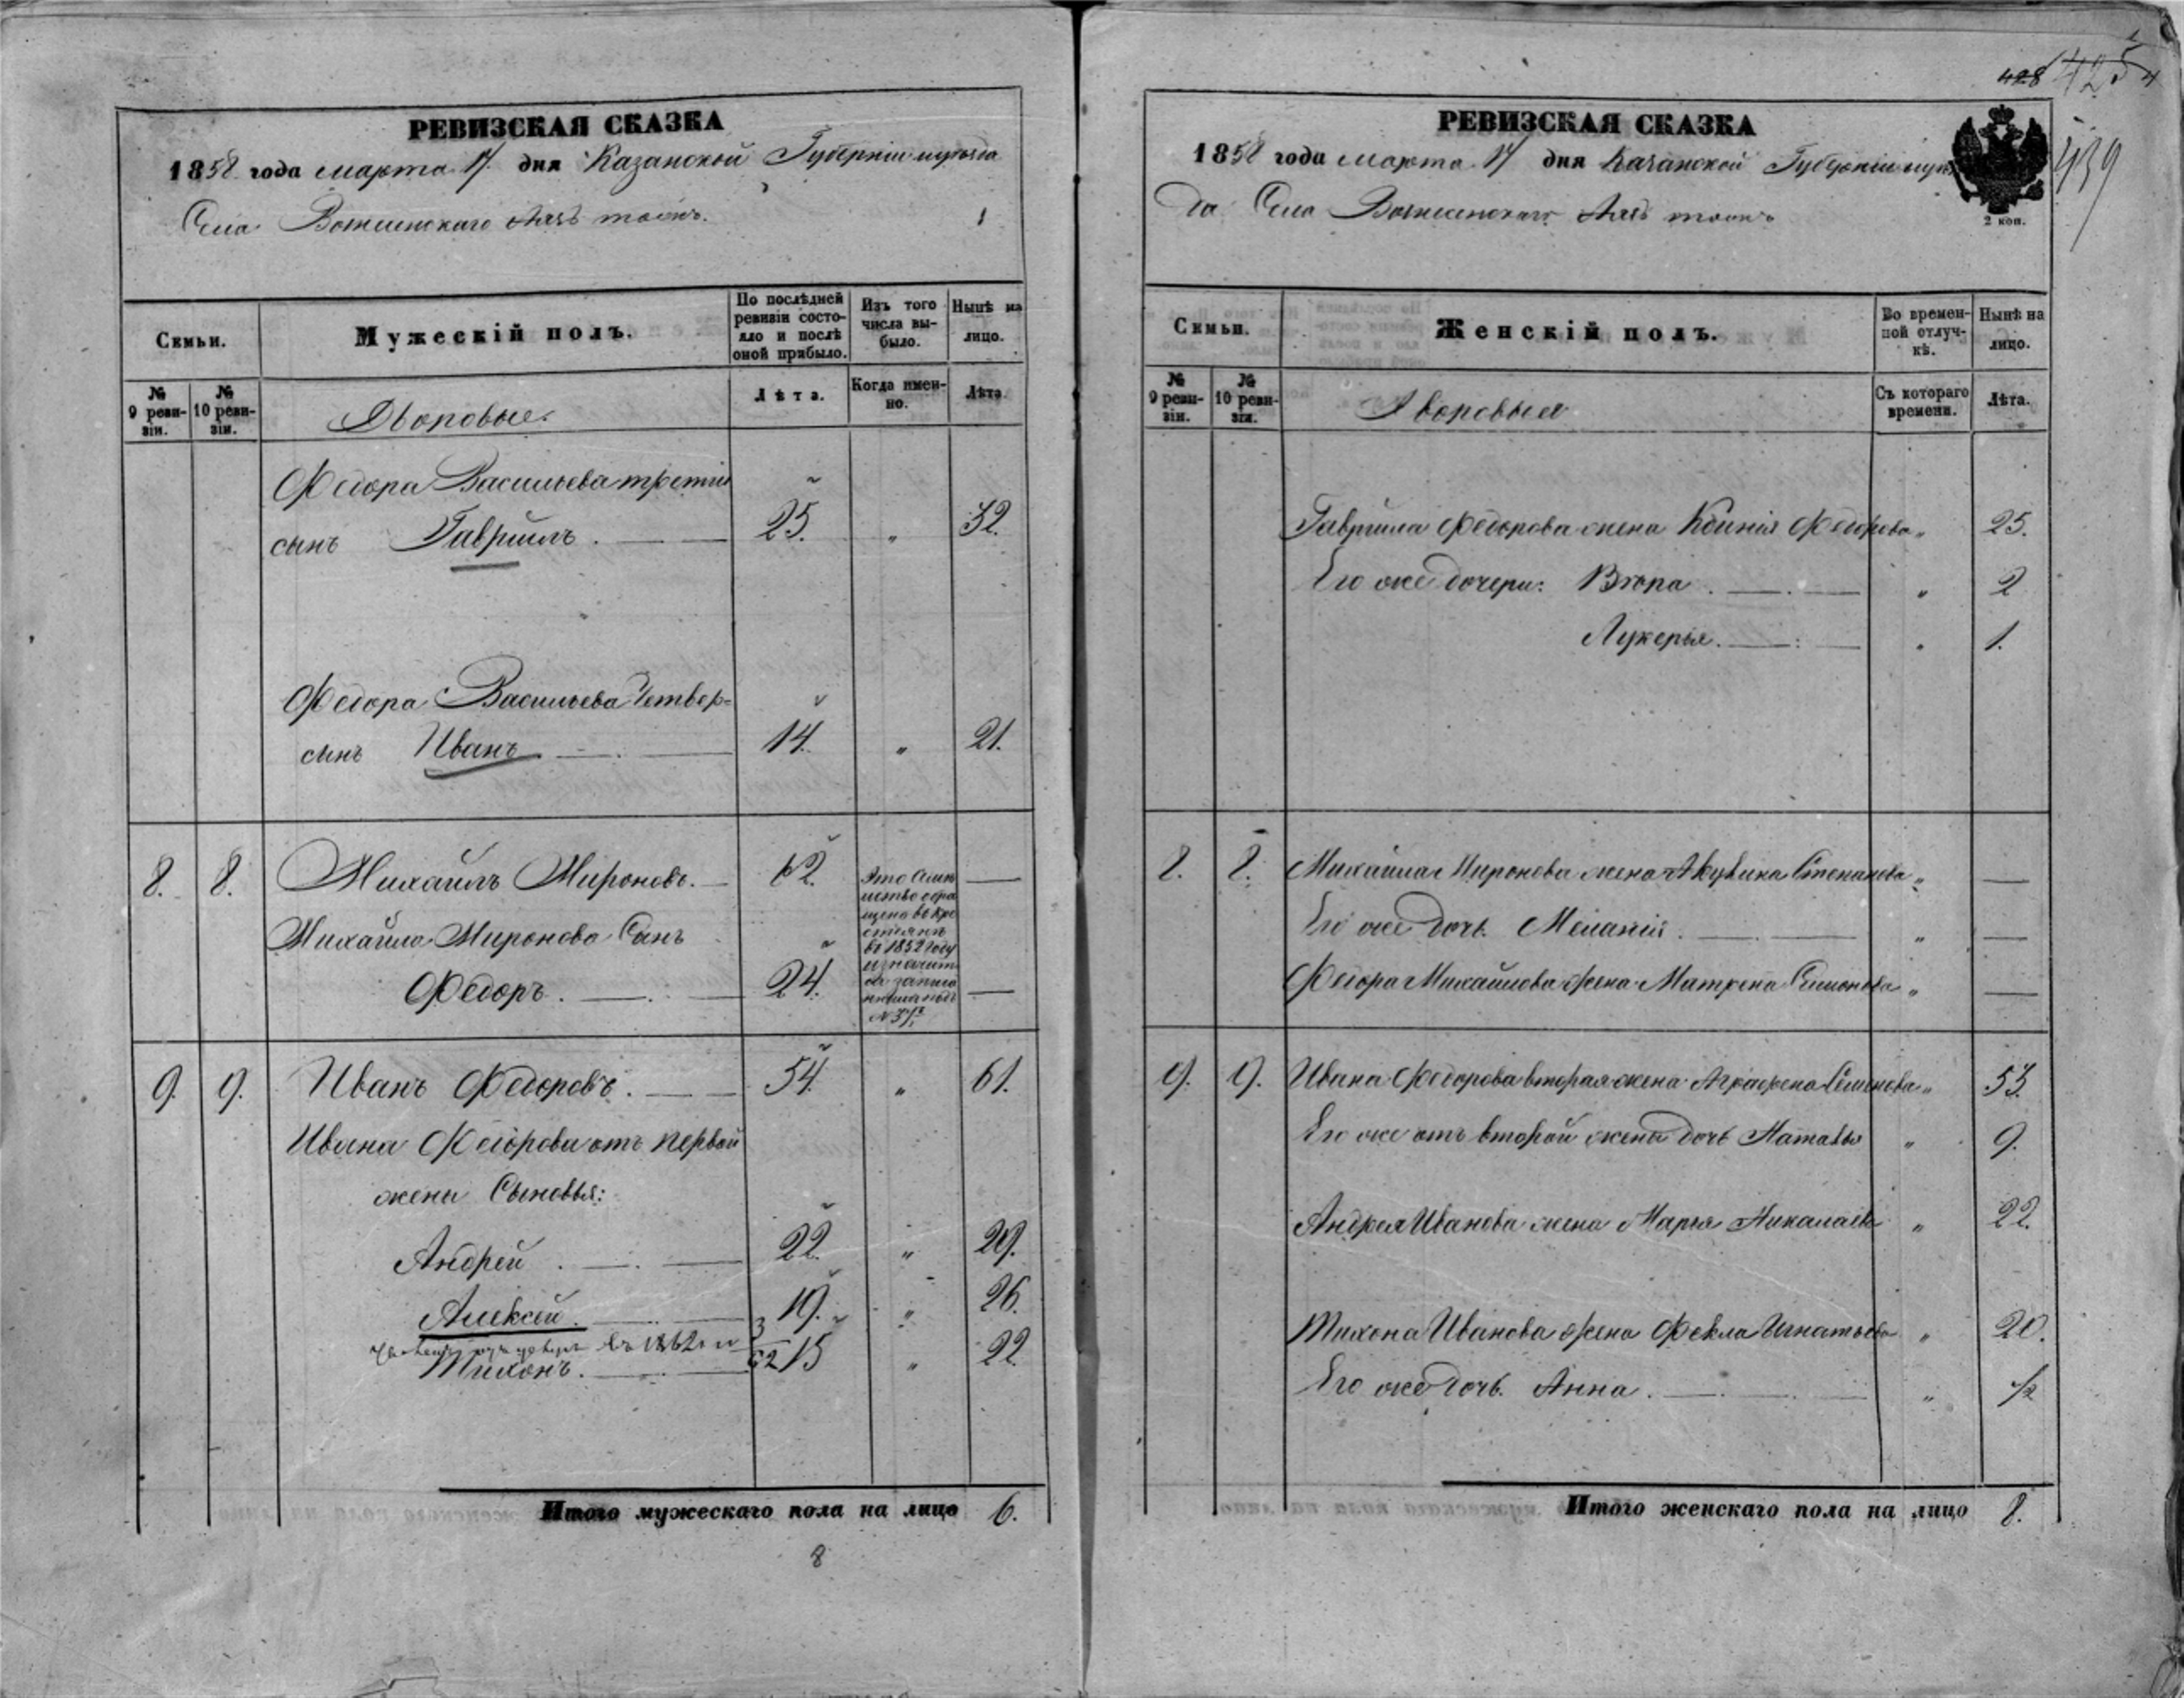 РЕВИЗСКАЯ СКАЗКА
1858 года марта 17 дня Казанской Губерніи и уѣзда
Села Вознесенскаго тожъ.
1
Семьи.
Мужескій полъ.
По послѣдней ревизіи состояло и послѣ оной прибыло.
Изъ того числа выбыло.
Нынѣ на лицо.
№ 9 ревизіи.
№ 10 ревизіи.
Дворовые.
Лѣта.
Когда именно.
Лѣта.
Федора Васильева третій
сынъ Гаврiилъ. 25. " 32.
Федора Васильева четвер=
сынъ Иванъ 14. " 21.
8. 8. Михаилъ Мироновъ. 62. —
Это Семейство обращено въ крестьянъ въ 1852 году и значится подъ №
Михайла Миронова Сынъ
Федоръ. 24. —
9. 9. Иванъ Федоровъ. 54. " 61.
Ивана Федорова отъ первой
жены Сыновья:
Андрей 22. " 29.
Алексѣй. 19. " 26.
въ 1862 г
Тихонъ. 15 " 22.
Итого мужескаго пола на лицо 6.
8
428
425
4
439
РЕВИЗСКАЯ СКАЗКА
1858 года марта 17 дня Казанской Губерніи и уѣз
да Села Вознесенскаго тожъ
2 коп.
Семьи.
Женскій полъ.
Во временной отлучкѣ.
Нынѣ на лицо.
№ 9 ревизіи.
№ 10 ревизіи.
Дворовыя
Съ котораго времени.
Лѣта.
Гаврiила Федорова жена Ксинiя Федорова " 25.
Его же дочери: Вѣра. " 2
Лукерья. " 1.
8. 8. Михайла Миронова жена Акулина Степанова " —
Его же дочь Меланiя. " —
Федора Михайлова жена Матрена Семонова " —
9. 9. Ивана Федорова вторая жена Аграфена Семенова " 53.
Его же отъ второй жены дочь Наталья " 9.
Андрея Иванова жена Марья Николаева " 22.
Тихона Иванова жена Фекла Игнатьева " 20.
Его же дочь Анна. " ½
Итого женскаго пола на лицо 8.